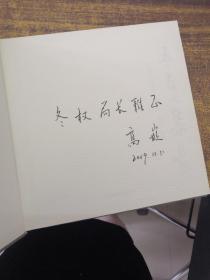 冬权局长雅正
高巍
2009.11.21